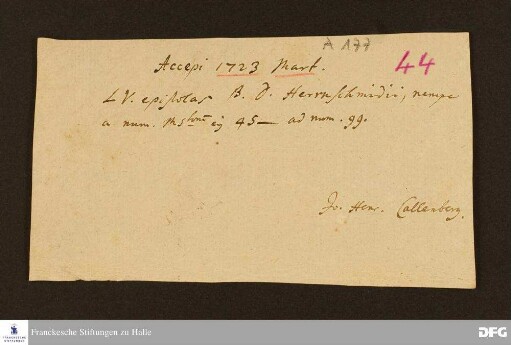 A 177
44
Accepi 1723 Mart.
LV. epistolas B. D. Herrnschmidii, nempe
a num. 45 — ad num. 99.
Jo. Henr. Callenberg.
Franckesche Stiftungen zu Halle
DFG